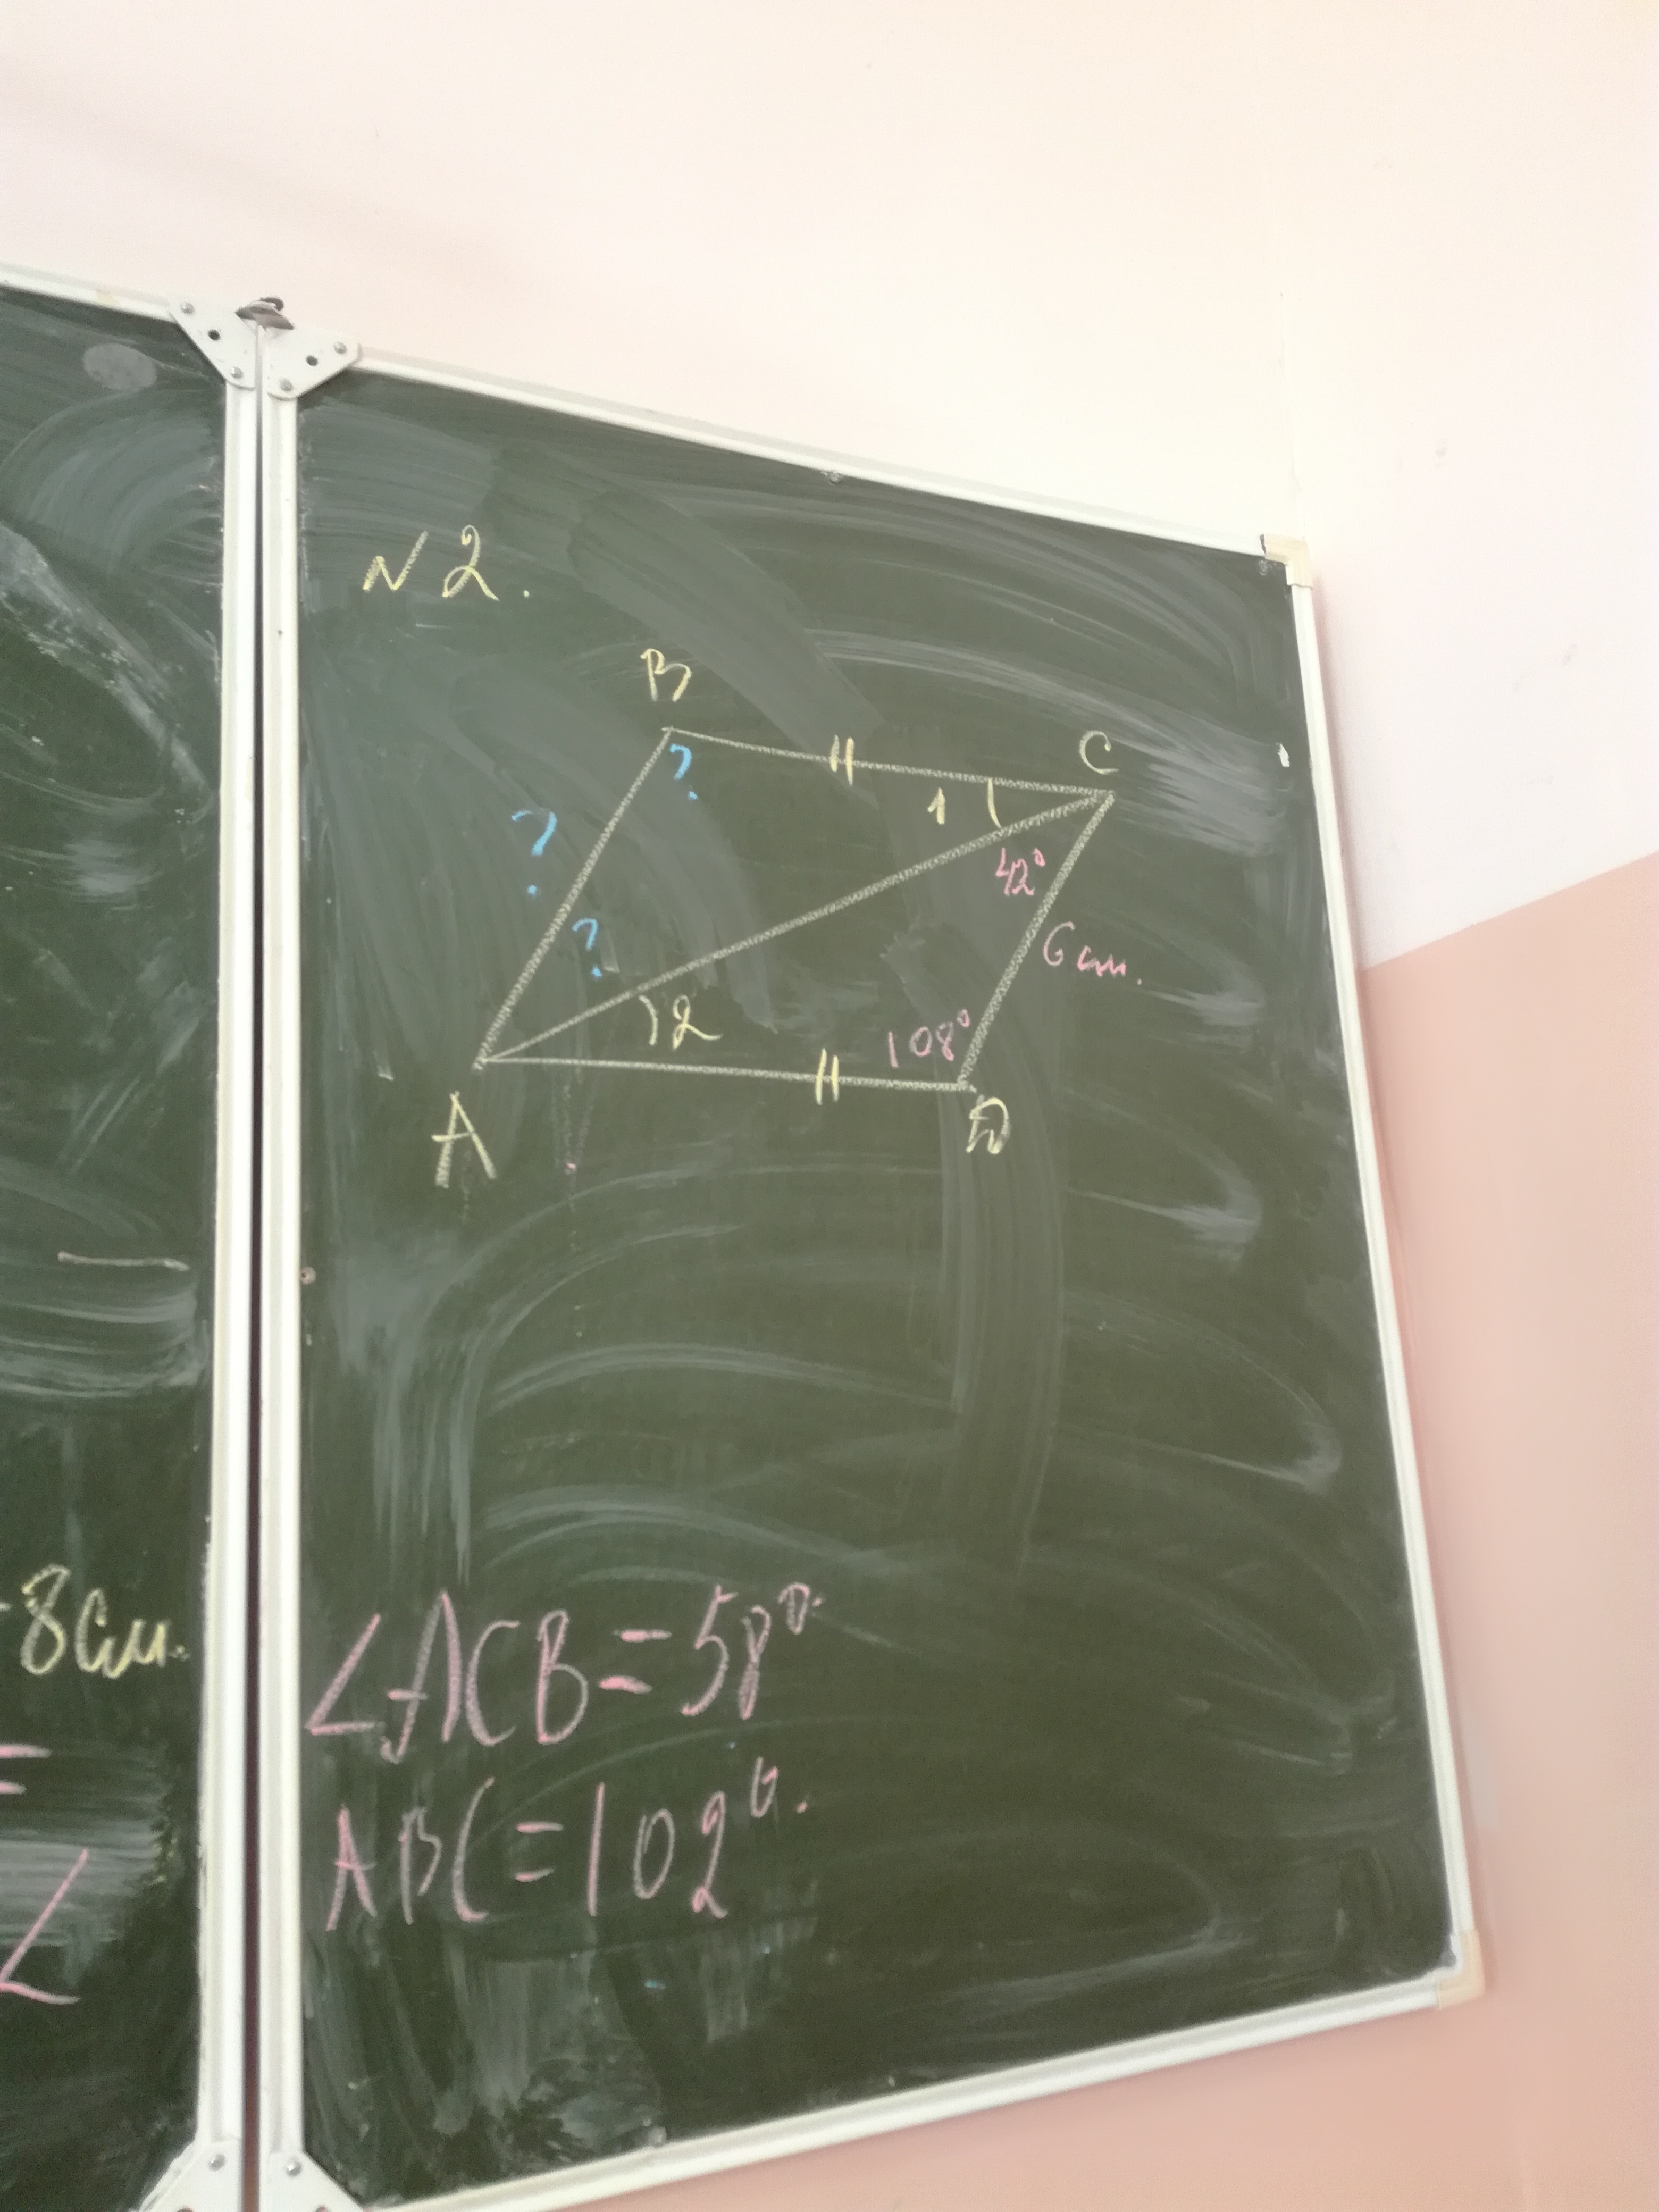 N2.
B
C
?
1
?
42°
?
6 см.
2
108°
A
D
8 см.
∠ACB=58°.
=
ABC=102°.
∠